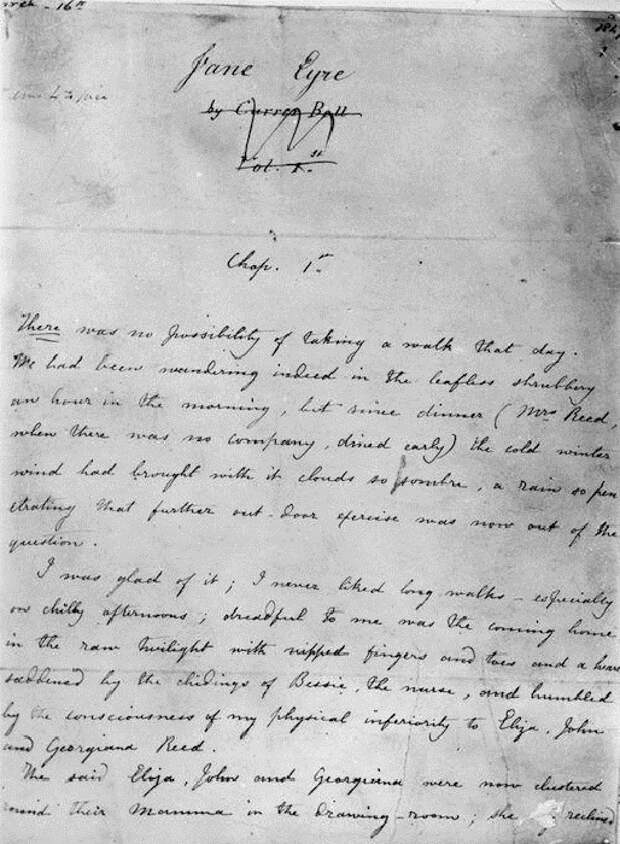 16th
Jane Eyre
by Currer Bell
Vol. 1.st
Chap. 1st
There was no possibility of taking a walk that day.
We had been wandering indeed in the leafless shrubbery
an hour in the morning, but since dinner (Mrs Reed,
when there was no company, dined early) the cold winter
wind had brought with it clouds so sombre, a rain so pen
etrating that further out-door exercise was now out of the
question.
I was glad of it; I never liked long walks - especially
on chilly afternoons; dreadful to me was the coming home
in the raw twilight with nipped fingers and toes and a heart
saddened by the chidings of Bessie, the nurse, and humbled
by the consciousness of my physical inferiority to Eliza, John
and Georgiana Reed.
The said Eliza, John and Georgiana were now clustered
round their Mamma in the drawing-room; she reclined